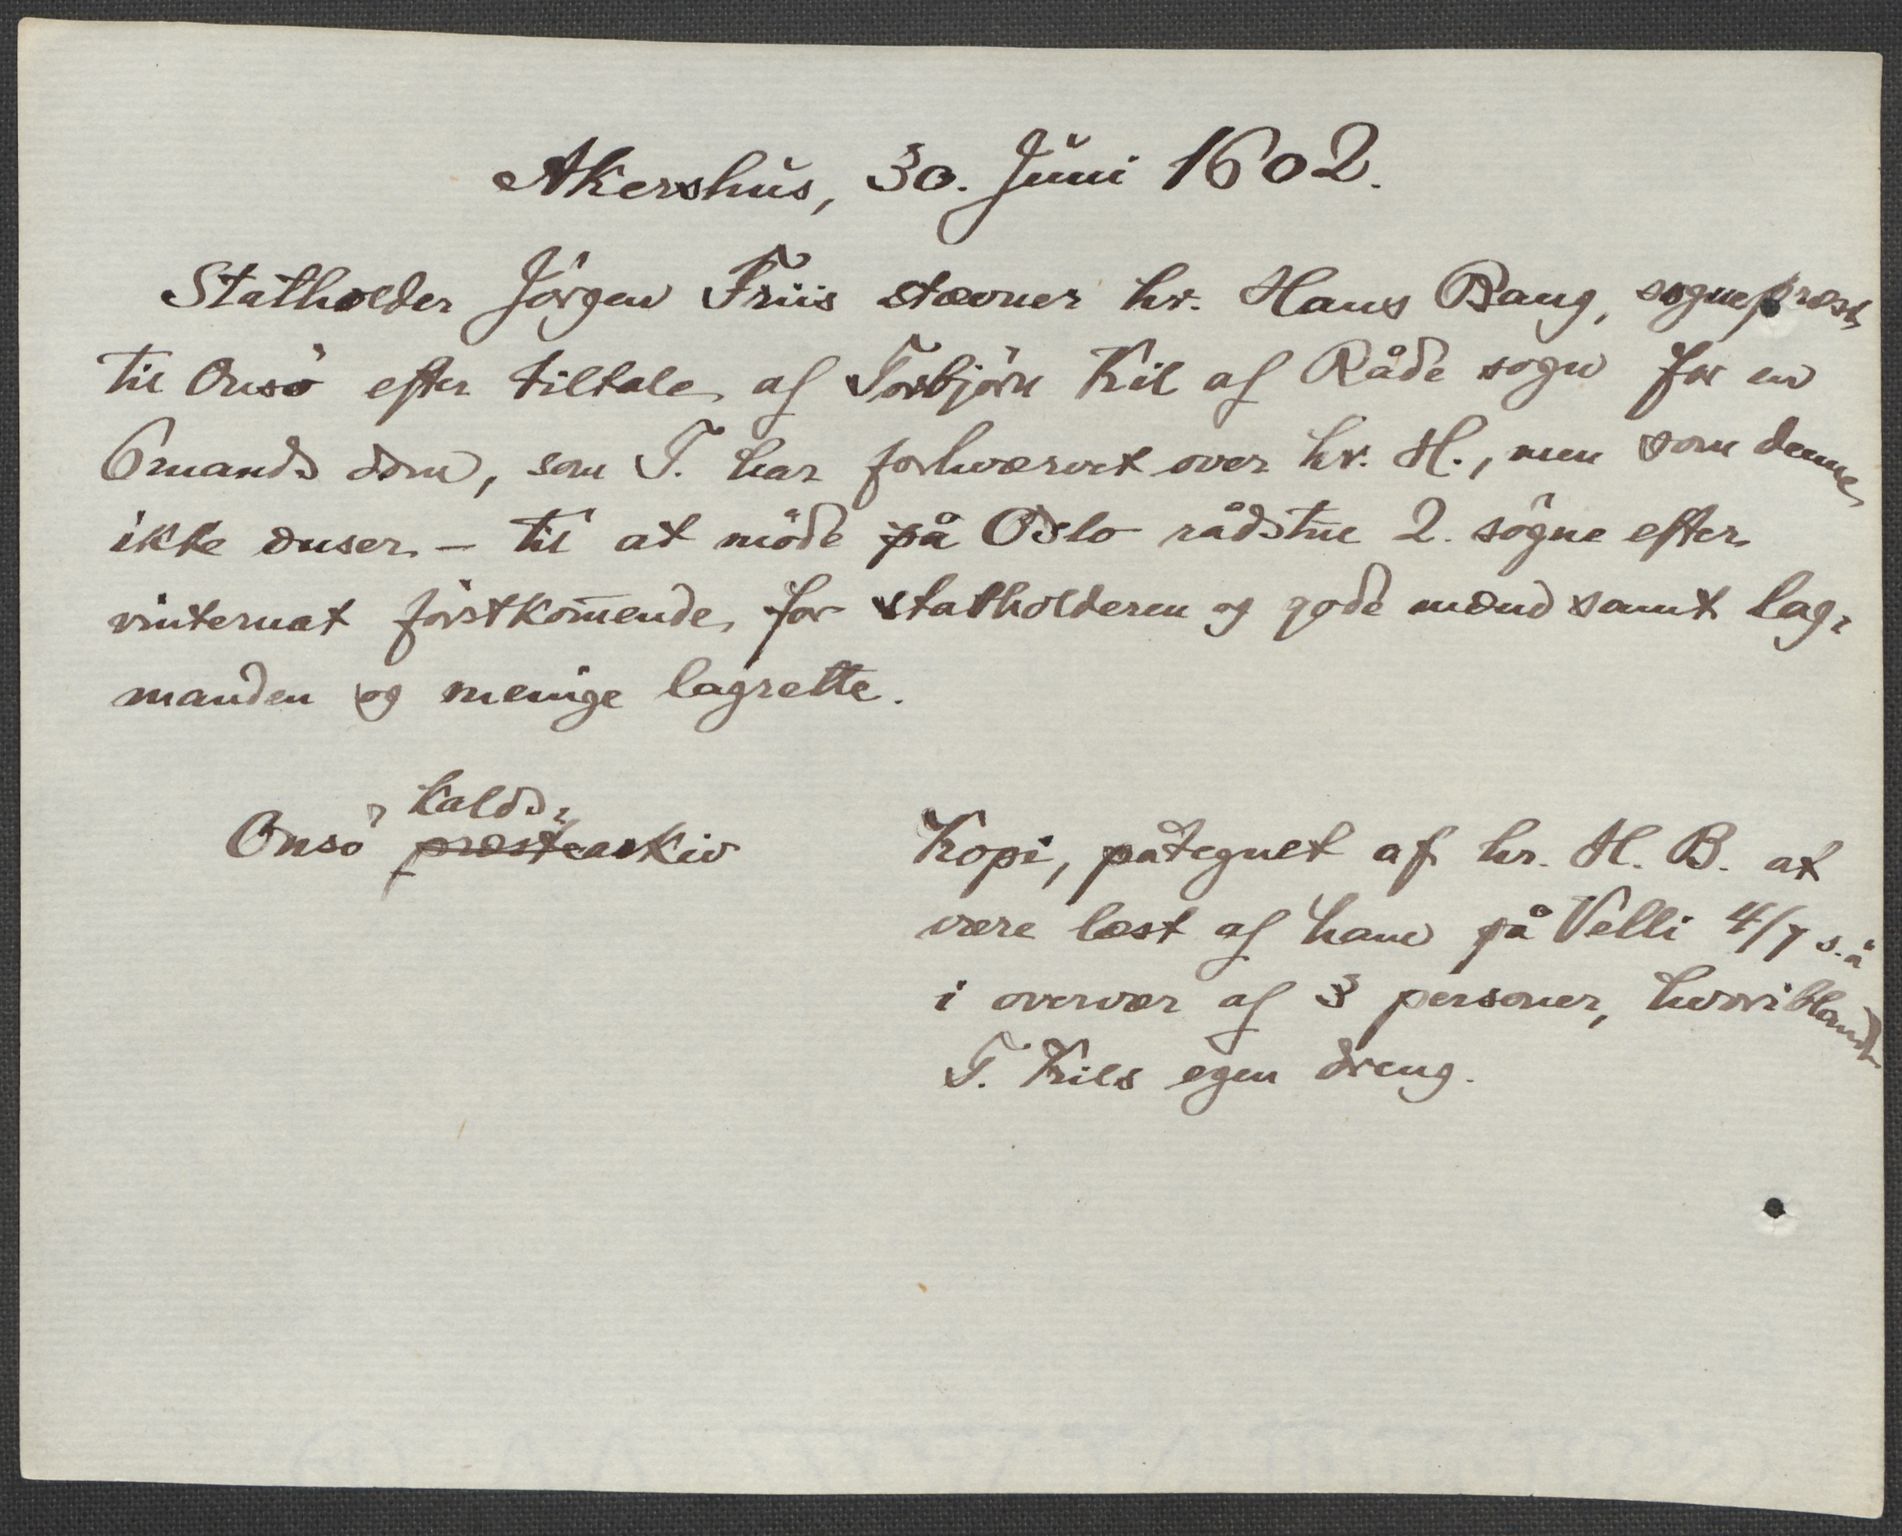 Akershus, 30. Juni 1602.
Statholder Jörgen Friis stævner hr. Hans Bang, sognepræst
til Onsö efter tiltale af Torbjörn Kil af Råde sogn for en
6mands dom, som T. har forhværvet over hr. H., men som denne
ikke ænser – til at möde på Oslo rådstue 2. sögne efter
vinternat förstkom̄ende, for statholderen og gode mænd samt lag-
manden og menige lagrette.
Onsö kalds-
præstearkiv
Kopi, påtegnet af hr. H. B. at
være læst af ham på Velli 4/7 s. å
i overvær af 3 personer, hvoriblandt
T. Kils egen dreng.